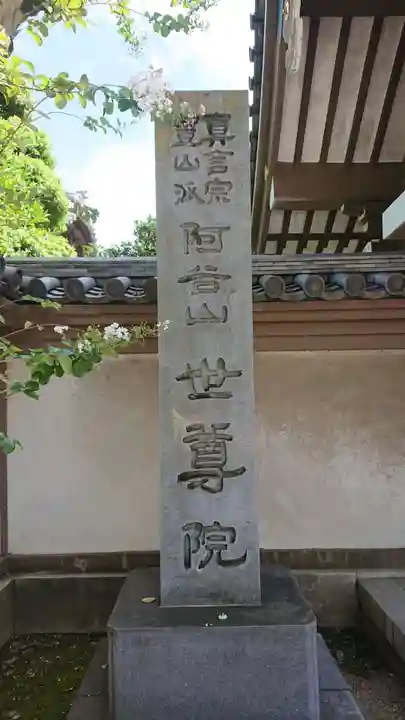 真言宗
豊山派
阿谷山
世尊院